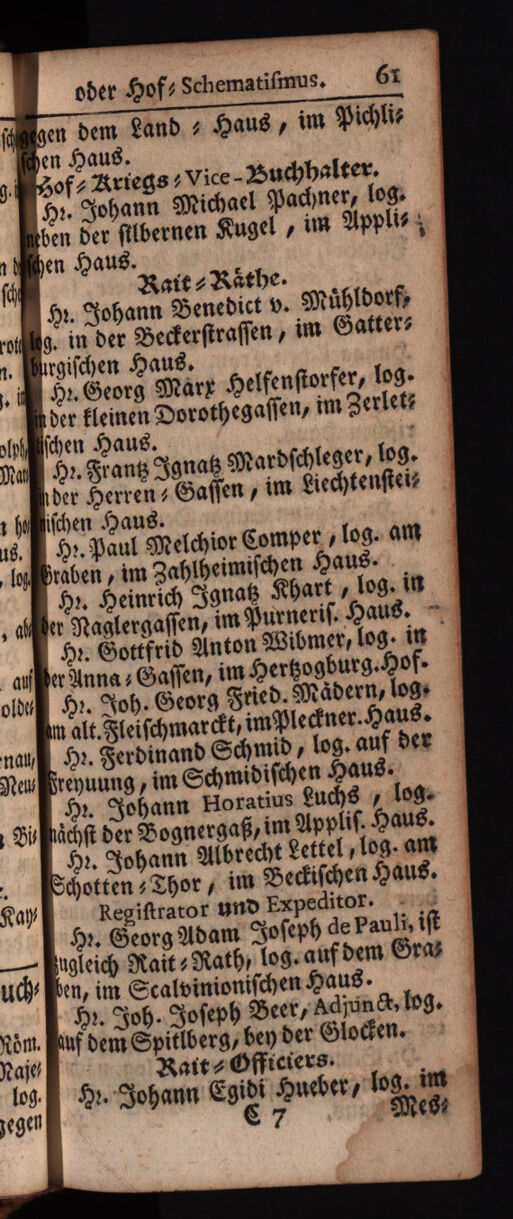 oder Hof⸗Schematiſmus. 61
gegen dem Land⸗Haus, im Pichli⸗
ſchen Haus.
Hof⸗Kriegs⸗Vice-Buchhalter.
Hr. Johann Michael Pachner, log.
neben der ſilbernen Kugel, im Appli⸗
ſchen Haus.
Rait⸗Räthe.
Hr. Johann Benedict v. Mühldorf,
log. in der Beckerſtraſſen, im Gatter⸗
burgiſchen Haus.
Hr. Georg Marx Helfenſtorfer, log.
in der kleinen Dorothegaſſen, im Zerlet⸗
iſchen Haus.
Hr. Frantz Ignatz Mardſchleger, log.
in der Herren⸗Gaſſen, im Liechtenſtei⸗
niſchen Haus.
Hr. Paul Melchior Comper, log. am
Graben, im Zahlheimiſchen Haus.
Hr. Heinrich Ignatz Khart, log. in
der Naglergaſſen, im Purneriſ. Haus.
Hr. Gottfrid Anton Wibmer, log. in
der Anna⸗Gaſſen, im Hertzogburg. Hof.
Hr. Joh. Georg Fried. Mädern, log.
am alt. Fleiſchmarckt, im Pleckner. Haus.
Hr. Ferdinand Schmid, log. auf der
Freyuung, im Schmidiſchen Haus.
Hr. Johann Horatius Luchs, log.
nächſt der Bognergaß, im Appliſ. Haus.
Hr. Johann Albrecht Lettel, log. am
Schotten⸗Thor, im Beckiſchen Haus.
Regiſtrator und Expeditor.
Hr. Georg Adam Joſeph de Pauli, iſt
zugleich Rait⸗Rath, log. auf dem Gra⸗
ben, im Scalvinioniſchen Haus.
Hr. Joh. Joſeph Beer, Adjunct, log.
auf dem Spitlberg, bey der Glocken.
Rait⸗Officiers.
Hr. Johann Egidi Hueber, log. im
C 7 Mes⸗